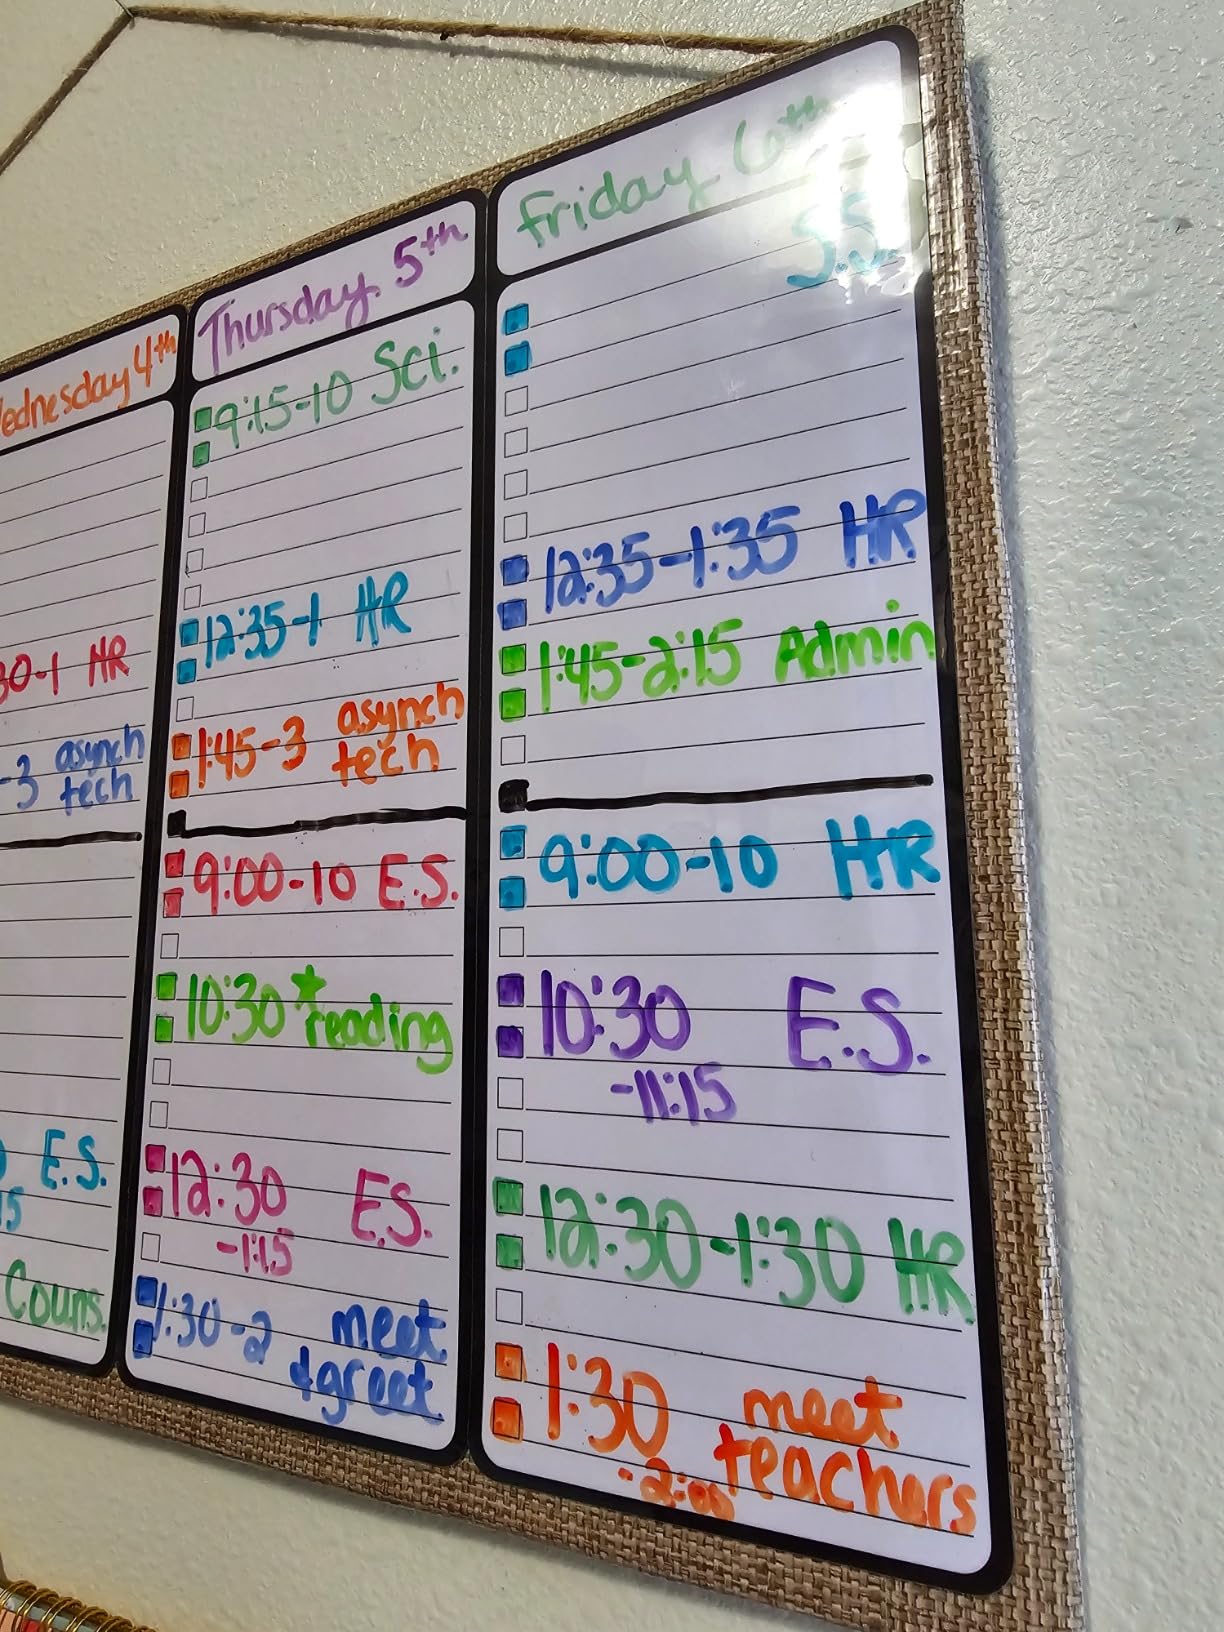 Wednesday 4th
30-1 HR
-3 asynch
tech
E.S.
15
Couns.
Thursday 5th
9:15-10 Sci.
12:35-1 HR
1:45-3 asynch
tech
9:00-10 E.S.
10:30 *reading
12:30 E.S.
-1:15
1:30-2 meet
&greet
Friday 6th
S.S.
12:35-1:35 HR
1:45-2:15 Admin
9:00-10 HR
10:30 E.S.
-11:15
12:30-1:30 HR
1:30 meet
-2:00 teachers